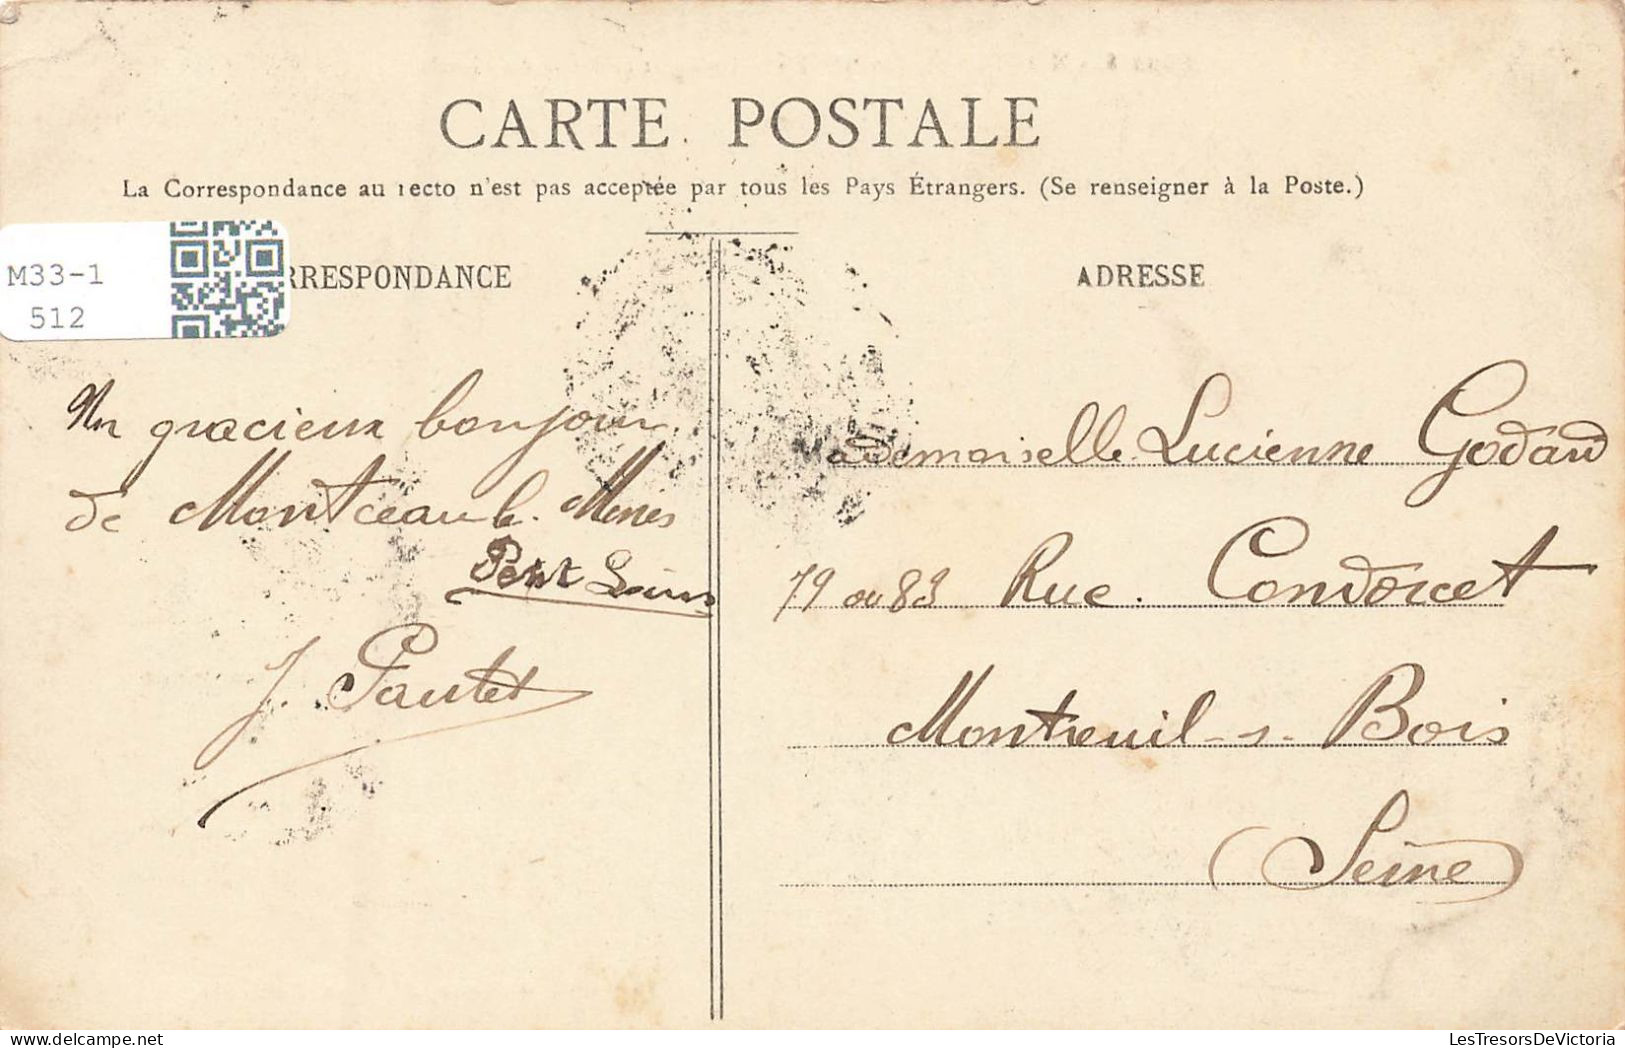 CARTE POSTALE
La Correspondance au recto n'est pas acceptée par tous les Pays Étrangers. (Se renseigner à la Poste.)
M33-1
512
RRESPONDANCE
ADRESSE
Un gracieux bonjour
de Montceau l. Mines
Petit Louis
J. Pautet
Mademoiselle Lucienne Godard
79 ou 83 Rue. Condorcet
Montreuil-s-Bois
(Seine)
LesTresorsDeVictoria